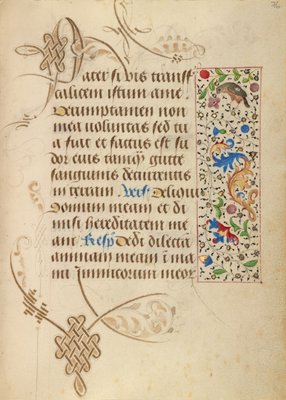 76
Pater si vis transf
calicem istum a me
Verumptamen non
mea voluntas sed tu
a fiat et factus est su
dor eius tamq̄ gutte
sanguinis decurrentis
in terram Vers̄ Reliqui
domum meam et di
misi hereditatem me
am Resp̄ Dedi dilectā
animam meam ī ma
nu inimicorum meor